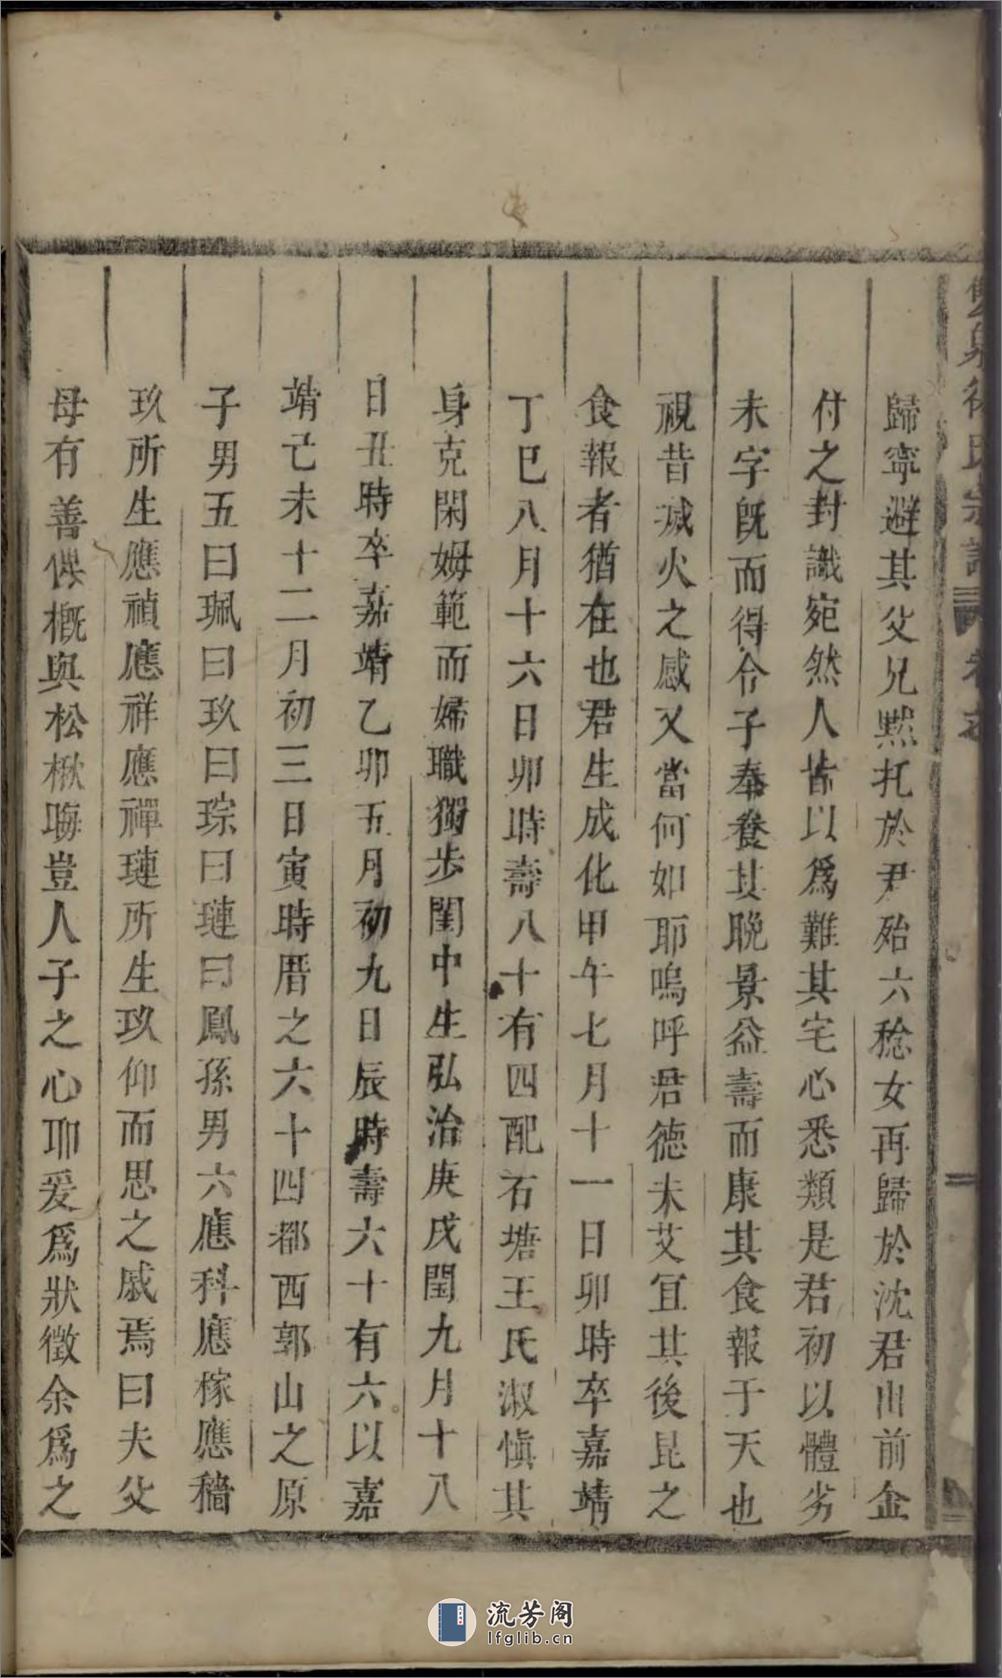 歸寧避其父兄黙托於尹殆六稔女再歸於沈君出前金
付之封識宛然人皆以爲難其宅心悉類是君初以體劣
未字旣而得令子奉養其晚景益壽而康其食報于天也
視昔減火之感又當何如耶嗚呼君德未艾宜其後昆之
食報者猶在也君生成化甲午七月十一日卯時卒嘉靖
丁巳八月十六日卯時壽八十有四配石塘王氏淑愼其
身克閑姆範而婦職獨步閨中生弘治庚戌閏九月十八
日丑時卒嘉靖乙卯五月初九日辰時壽六十有六以嘉
靖己未十二月初三日寅時厝之六十四都西郭山之原
子男五曰珮曰玖曰琮曰璉曰鳳孫男六應科應稼應穡
玖所生應禎應祥應禪璉所生玖仰而思之戚焉曰夫父
母有善俾槪與松楸晦豈人子之心耶爰爲狀徵余爲之
氏宗譜
流芳阁
lfglib.cn